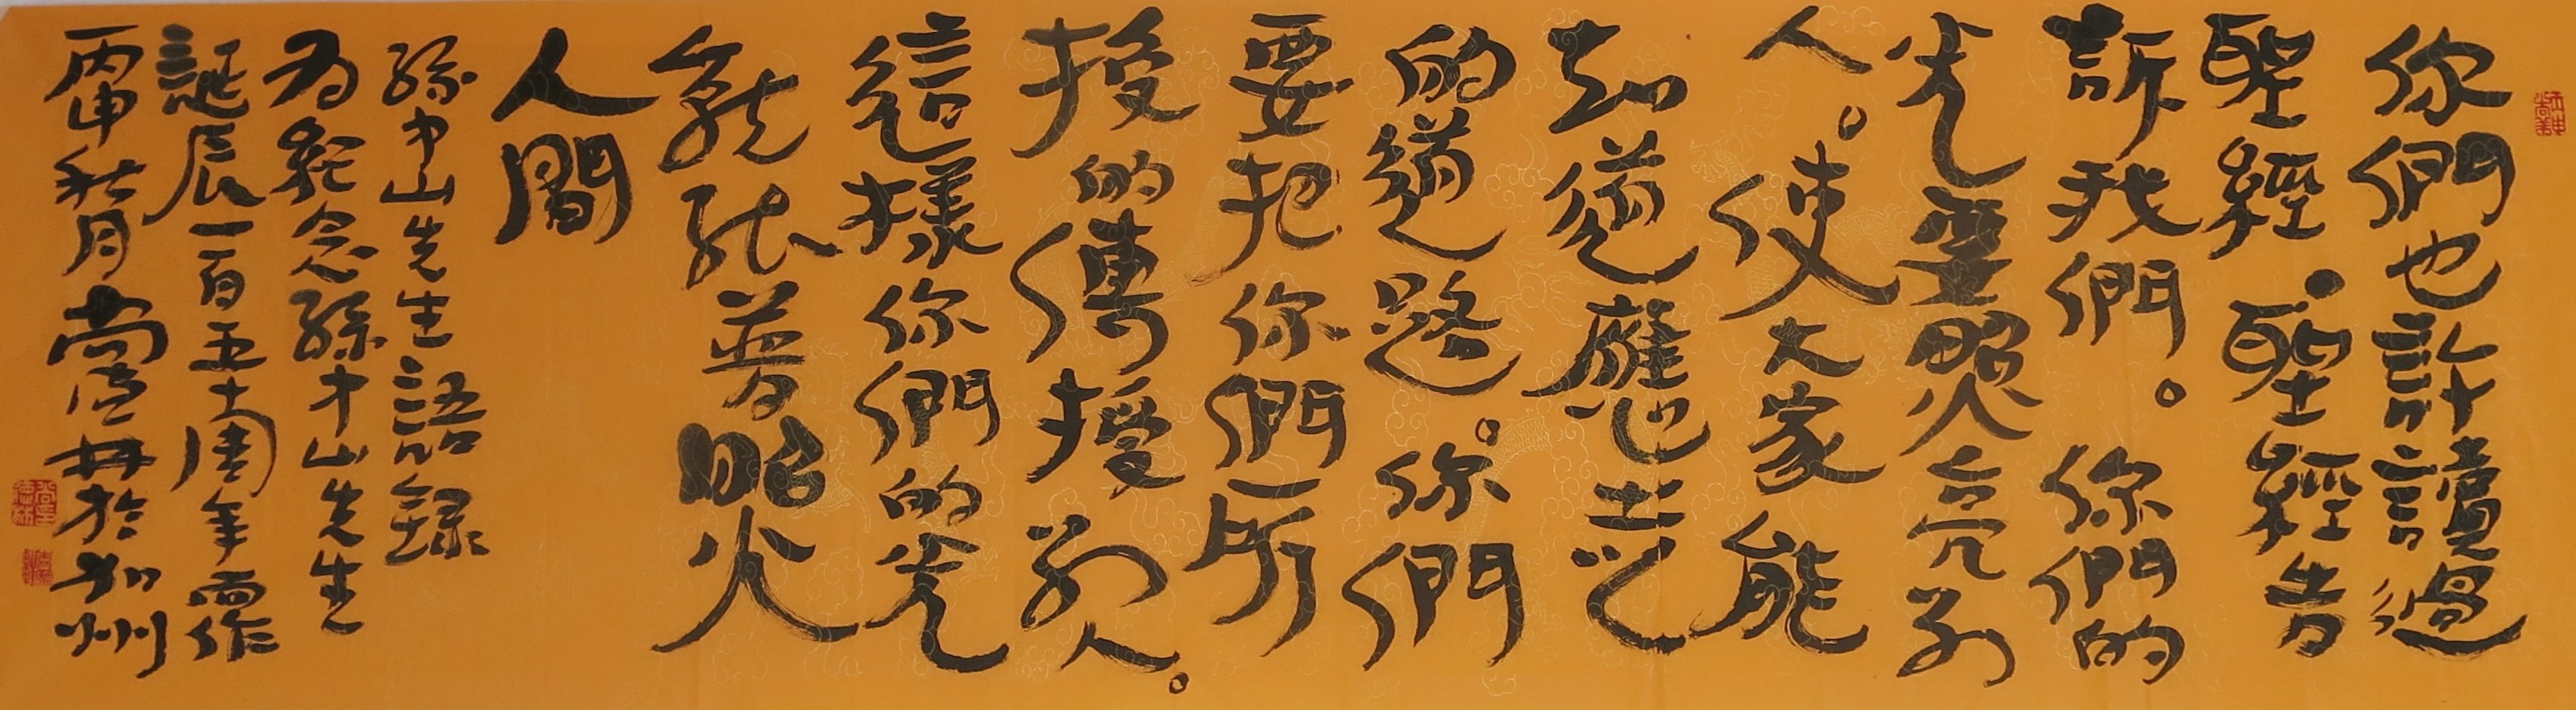 你們也許讀過
聖經·聖經告
訴我們。你們的
光要照亮別
人。使大家能
知道應走
的道路。你們
要把你們所
授的傳授別人。
這樣你們的光
就能普照
人間
孫中山先生語錄
為紀念孫中山先生
誕辰一百五十周年而作
丙申秋月尚德林於加州